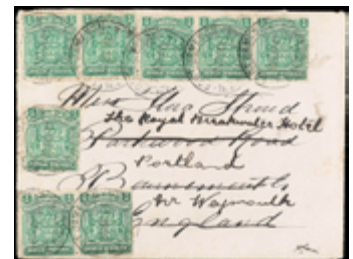 Miss Stroud
The Royal Breakwater Hotel
Parkwood Road
Portland
Bournemouth
Nr Weymouth
England